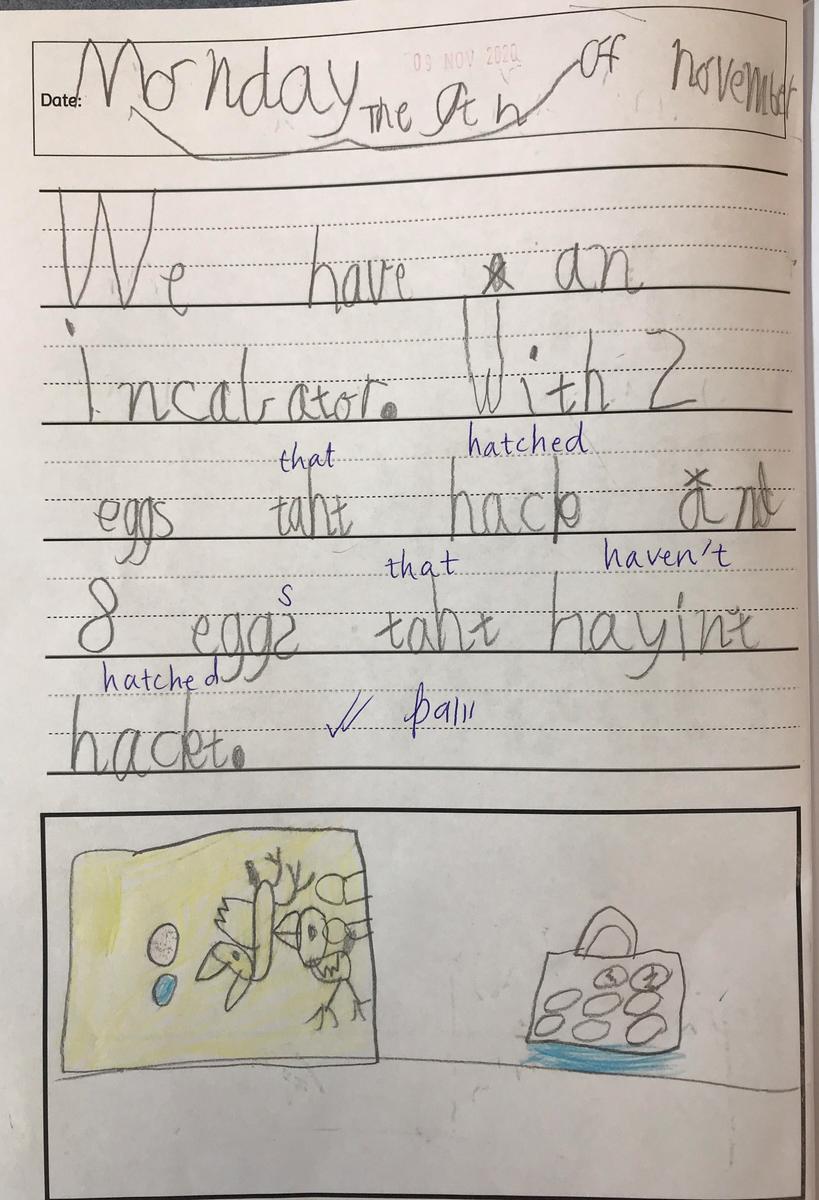 09 NOV 2020
Date: Monday The 9th Off november
We have an
incabator. With 2
that hatched
eggs taht hack and
that haven't
s
8 eggs taht hayint
hatched
hackt.